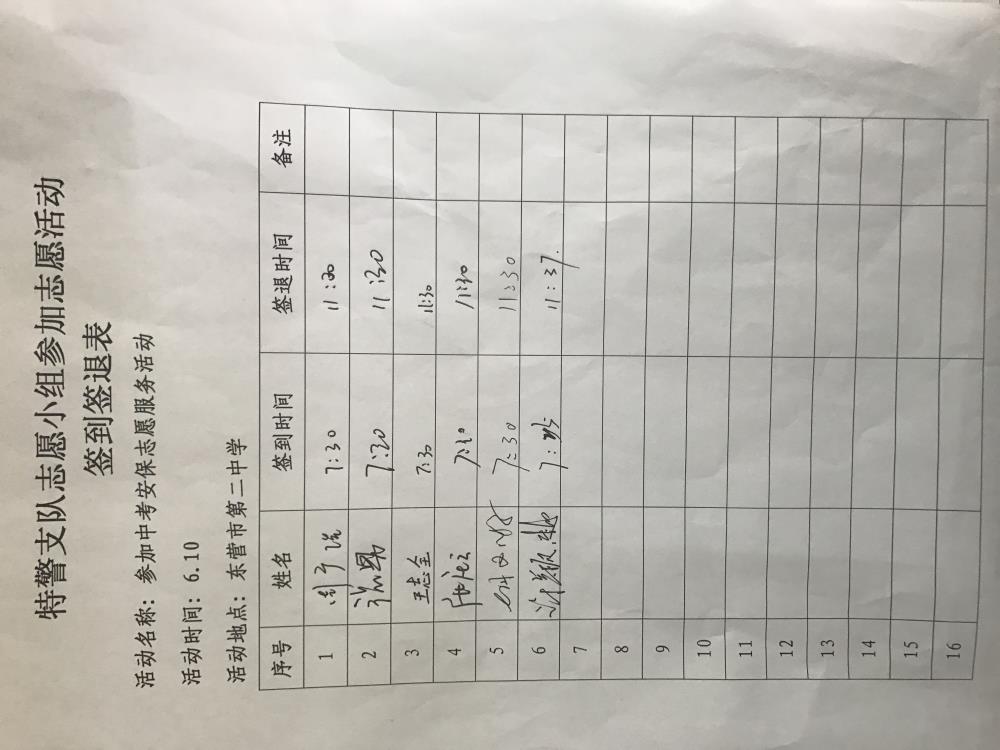 特警支队志愿小组参加志愿活动
签到签退表
活动名称：参加中考安保志愿服务活动
活动时间：6.10
活动地点：东营市第二中学
序号 姓名 签到时间 签退时间 备注
1 7:30 11:30
2 7:30 11:30
3 王志全 7:30 11:30
4 7:30 11:30
5 7:30 11:30
6 7: 11:37
7
8
9
10
11
12
13
14
15
16